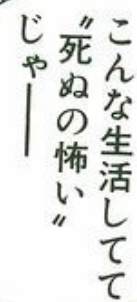 こんな生活してて
〝死ぬの怖い〟
じゃ――